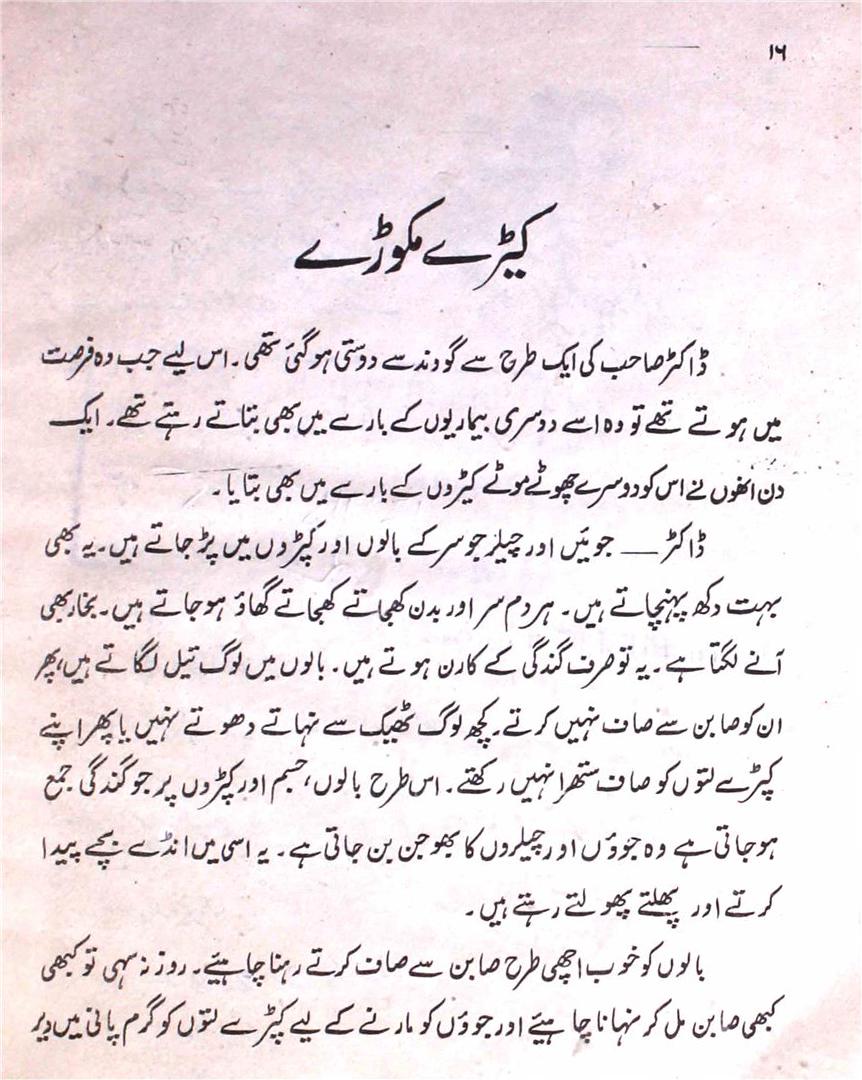 ۱۶
کیڑے مکوڑے
ڈاکٹر صاحب کی ایک طرح سے گووند سے دوستی ہو گئی تھی۔ اس لیے جب وہ فرصت
میں ہوتے تھے تو وہ اسے دوسری بیماریوں کے بارے میں بھی بتاتے رہتے تھے۔ ایک
دن انھوں نے اس کو دوسرے چھوٹے موٹے کیڑوں کے بارے میں بھی بتایا۔
ڈاکٹر — جوئیں اور چیلر جو سر کے بالوں اور کپڑوں میں پڑ جاتے ہیں۔ یہ بھی
بہت دکھ پہنچاتے ہیں۔ ہر دم سر اور بدن کھجاتے کھجاتے گھاؤ ہو جاتے ہیں۔ بخار بھی
آنے لگتا ہے۔ یہ تو صرف گندگی کے کارن ہوتے ہیں۔ بالوں میں لوگ تیل لگاتے ہیں، پھر
ان کو صابن سے صاف نہیں کرتے۔ کچھ لوگ ٹھیک سے نہاتے دھوتے نہیں یا پھر اپنے
کپڑے لتوں کو صاف ستھرا نہیں رکھتے۔ اس طرح بالوں، جسم اور کپڑوں پر جو گندگی جمع
ہو جاتی ہے وہ جوؤں اور چیلروں کا بھوجن بن جاتی ہے۔ یہ اسی میں انڈے بچے پیدا
کرتے اور پھلتے پھولتے رہتے ہیں۔
بالوں کو خوب اچھی طرح صابن سے صاف کرتے رہنا چاہیئے۔ روز نہ سہی تو کبھی
کبھی صابن مل کر نہانا چاہیئے اور جوؤں کو مارنے کے لیے کپڑے لتوں کو گرم پانی میں دیر